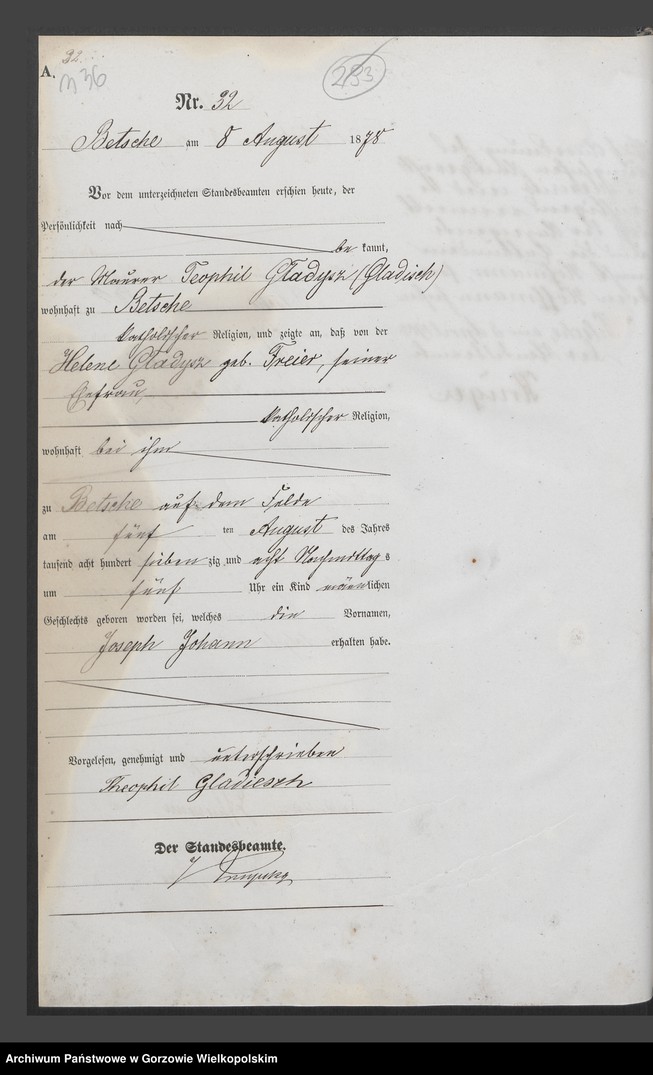 32.
A.
233
Nr. 32
Betsche am 8 August 1878
Vor dem unterzeichneten Standesbeamten erschien heute, der
Persönlichkeit nach
be kannt,
der Maurer Teophil Gladysz (Gladisch)
wohnhaft zu Betsche
katholischer Religion, und zeigte an, daß von der
Helene Gladysz geb. Freier, seiner
Ehefrau,
katholischer Religion,
wohnhaft bei ihm
zu Betsche auf dem Felde
am fünf ten August des Jahres
tausend acht hundert sieben zig und acht Nachmittag s
um fünf Uhr ein Kind männlichen
Geschlechts geboren worden sei, welches die Vornamen,
Joseph Johann erhalten habe.
Vorgelesen, genehmigt und unterschrieben
Theophil Gladiesch
Der Standesbeamte.
Archiwum Państwowe w Gorzowie Wielkopolskim